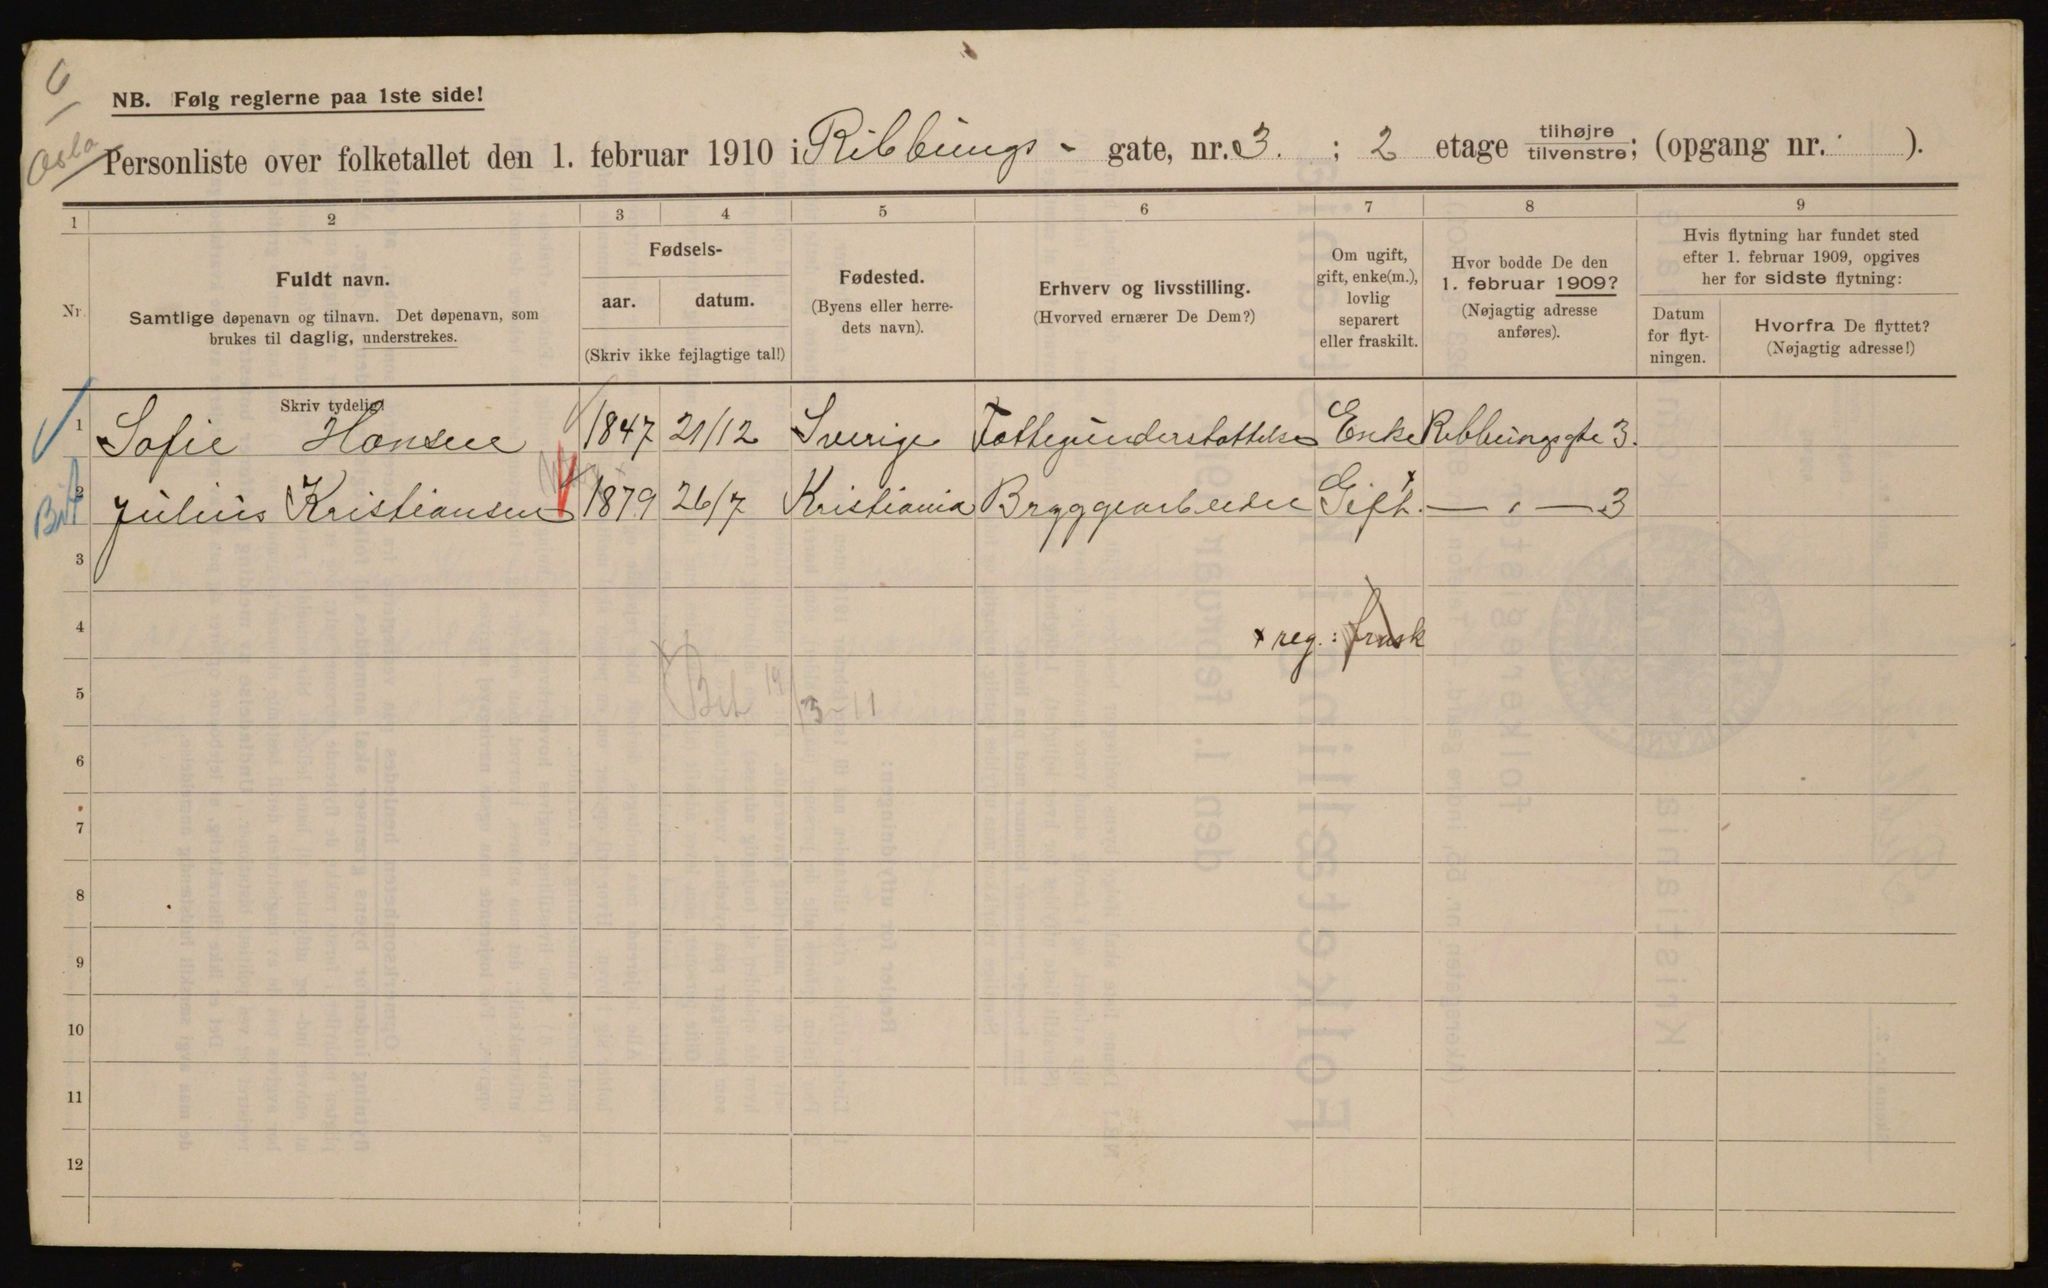 6
Oslo
NB. Følg reglerne paa 1ste side!
Personliste over folketallet den 1. februar 1910 i Ribbungs - gate, nr. 3. ; 2 etage tilhøjre tilvenstre; (opgang nr. ).
1 2 3 4 5 6 7 8 9
Nr.
Fuldt navn.
Samtlige døpenavn og tilnavn. Det døpenavn, som
brukes til daglig, understrekes.
Skriv tydelig!
Fødsels-
aar. datum.
(Skriv ikke fejlagtige tal!)
Fødested.
(Byens eller herre-
dets navn).
Erhverv og livsstilling.
(Hvorved ernærer De Dem?)
Om ugift,
gift, enke(m.),
lovlig
separert
eller fraskilt.
Hvor bodde De den
1. februar 1909?
(Nøjagtig adresse
anføres).
Hvis flytning har fundet sted
efter 1. februar 1909, opgives
her for sidste flytning:
Datum
for flyt-
ningen.
Hvorfra De flyttet?
(Nøjagtig adresse!)
1 Sofie Hansen 1847 21/12 Sverige Fattigunderstøttelse Enke Ribbungsgte 3.
2 Julius Kristiansen 1879 26/7 Kristiania Bryggearbeider Gift. x — " — 3
3
4 x reg.: frask
5
6
7
8
9
10
11
12